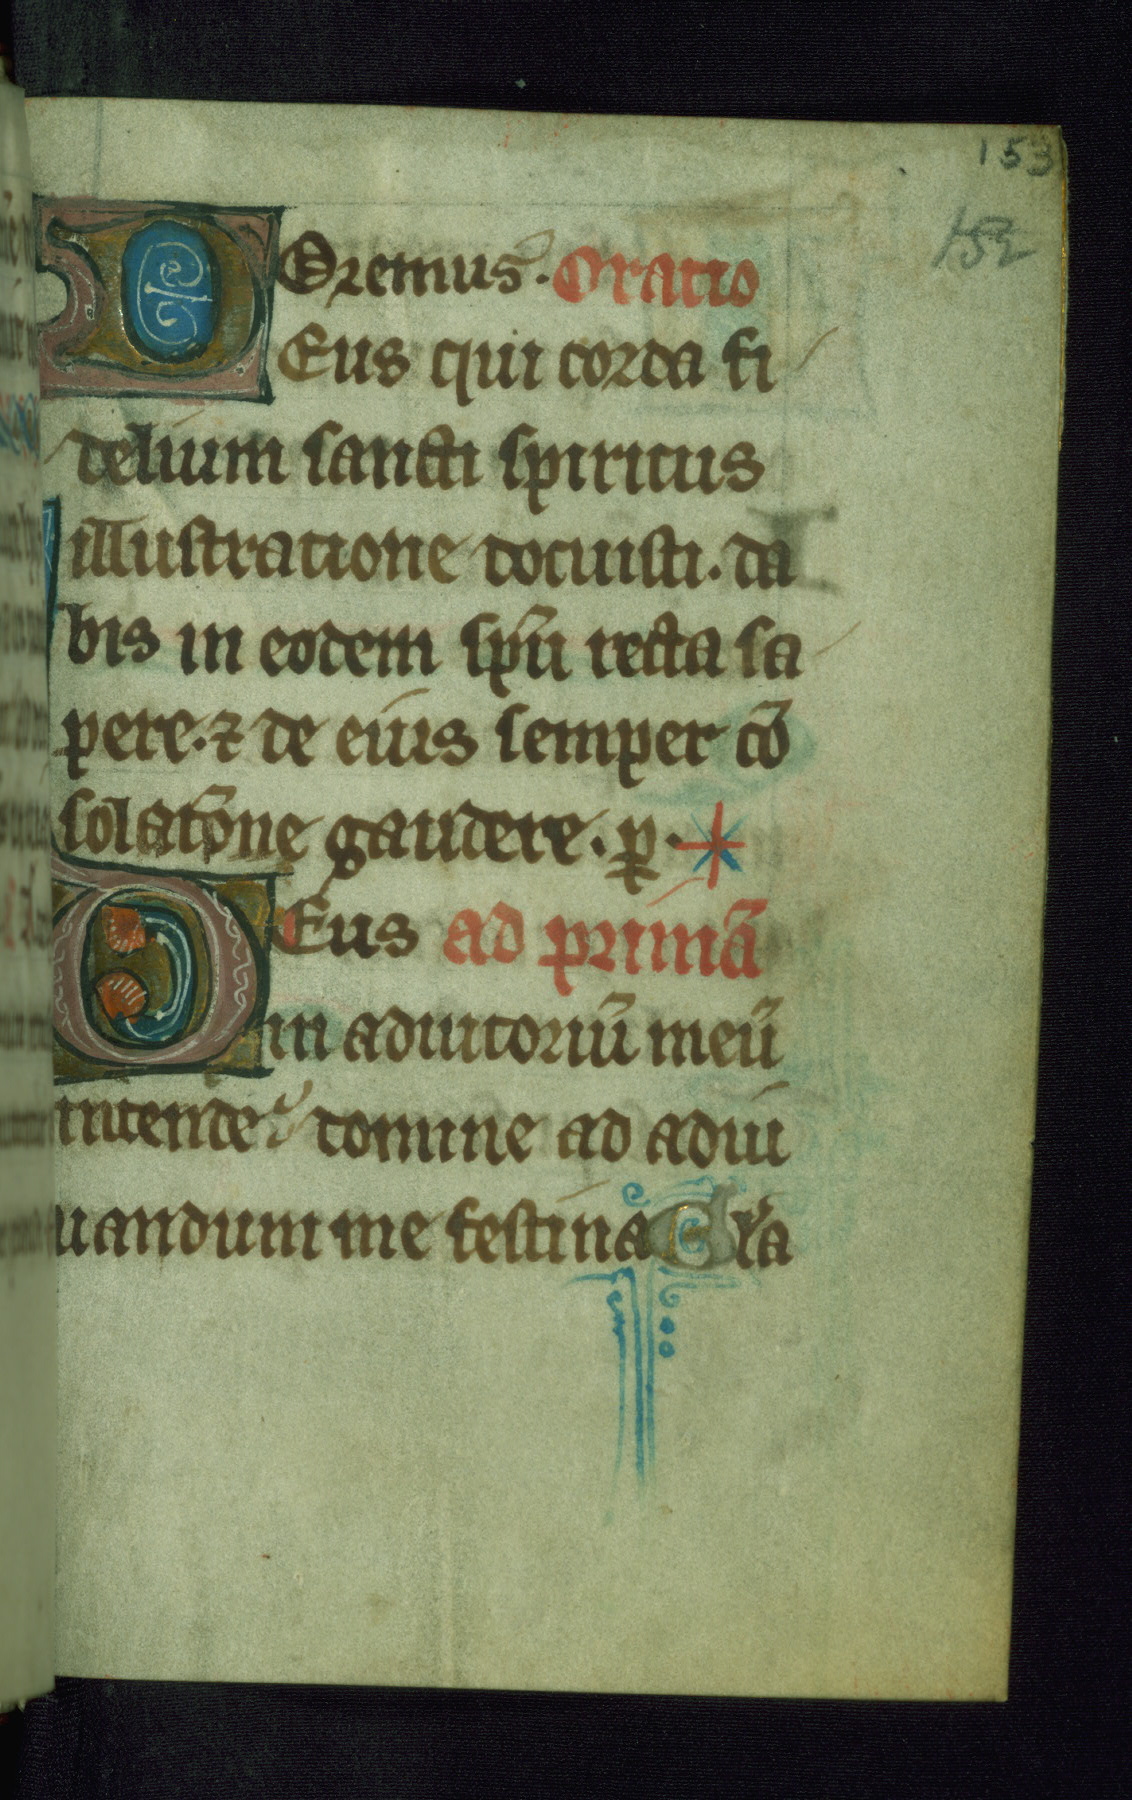 153
152
Oremus. Oratio
Deus qui corda fi
delium sancti spiritus
illustratione docuisti. da
bis in eodem sp̃u recta sa
pere. ⁊ de eius semper cõ
solatõne gaudere. ꝑ.
Deus ad primã
in adiutoriũ meũ
intende. domine ad adiu
uandum me festina Gl̃a